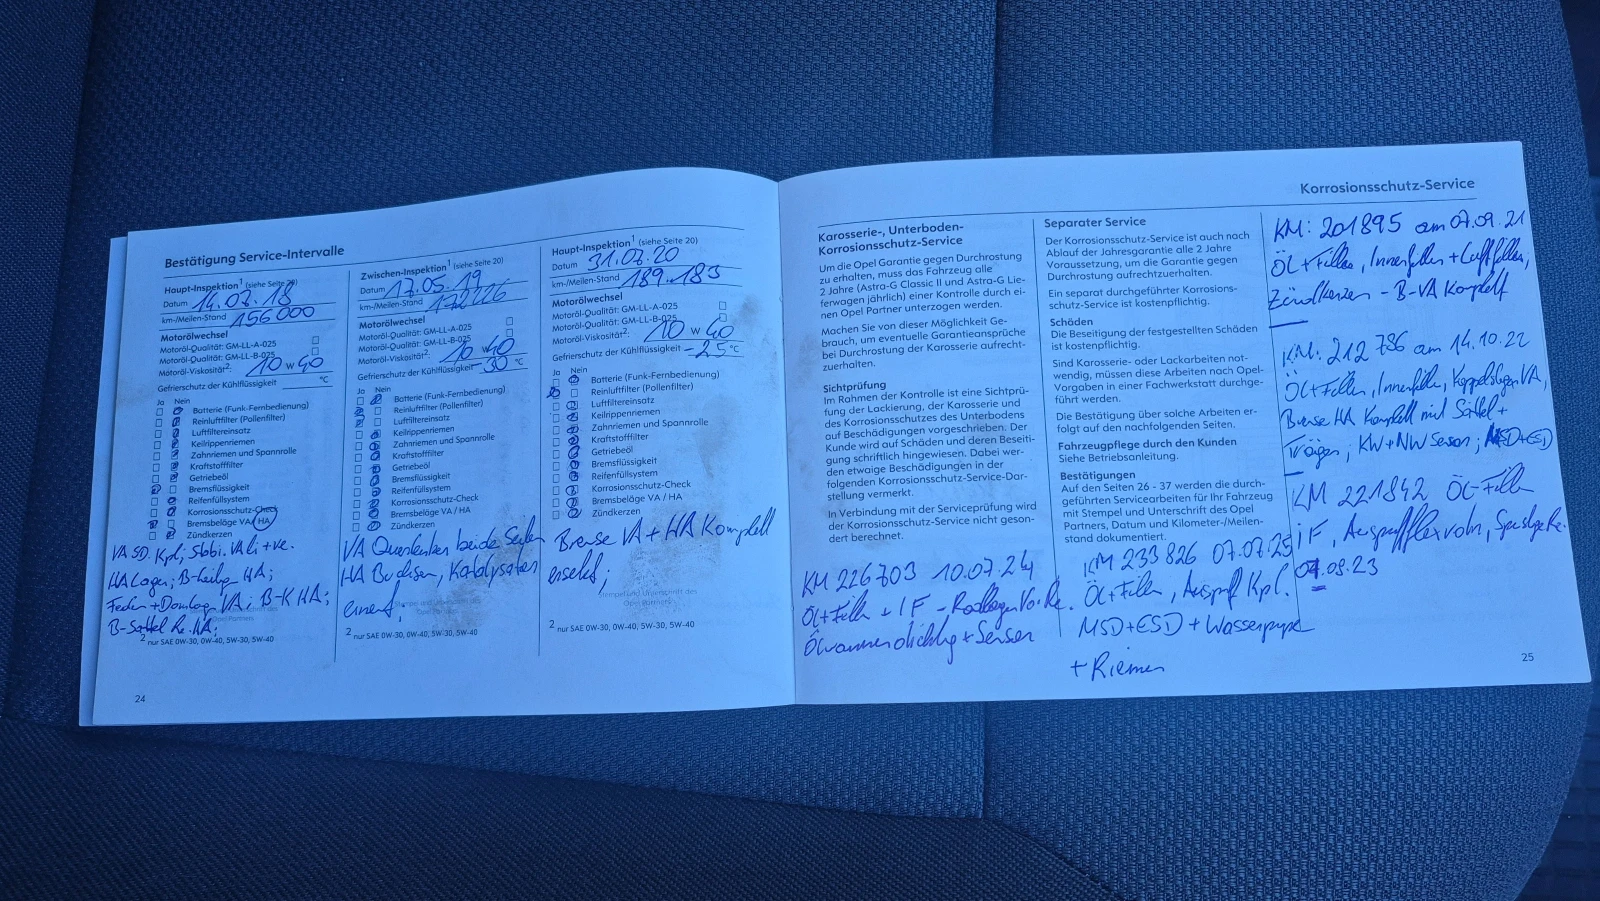 Bestätigung Service-Intervalle
Haupt-Inspektion¹ (siehe Seite 20)
Datum 14.07.18
km-/Meilen-Stand 156000
Motorölwechsel
Motoröl-Qualität: GM-LL-A-025
Motoröl-Qualität: GM-LL-B-025
Motoröl-Viskosität²: 10 W 40
Gefrierschutz der Kühlflüssigkeit °C
Ja Nein
Batterie (Funk-Fernbedienung)
Reinluftfilter (Pollenfilter)
Luftfiltereinsatz
Keilrippenriemen
Zahnriemen und Spannrolle
Kraftstofffilter
Getriebeöl
Bremsflüssigkeit
Reifenfüllsystem
Korrosionsschutz-Check
Bremsbeläge VA / HA
Zündkerzen
VA SD. Kpl; Stabi. VA li + re.
HA Lager; B-Beläge HA;
Federn + Domlager VA; B-K HA;
B-Sattel Re. HA;
² nur SAE 0W-30, 0W-40, 5W-30, 5W-40
24
Zwischen-Inspektion¹ (siehe Seite 20)
Datum 17.05.19
km-/Meilen-Stand
Motorölwechsel
Motoröl-Qualität: GM-LL-A-025
Motoröl-Qualität: GM-LL-B-025
Motoröl-Viskosität²: 10 W 40
Gefrierschutz der Kühlflüssigkeit -30 °C
Ja Nein
Batterie (Funk-Fernbedienung)
Reinluftfilter (Pollenfilter)
Luftfiltereinsatz
Keilrippenriemen
Zahnriemen und Spannrolle
Kraftstofffilter
Getriebeöl
Bremsflüssigkeit
Reifenfüllsystem
Korrosionsschutz-Check
Bremsbeläge VA / HA
Zündkerzen
VA Querlenker beide Seiten
HA Buchsen, Katalysator
erneut,
² nur SAE 0W-30, 0W-40, 5W-30, 5W-40
Haupt-Inspektion¹ (siehe Seite 20)
Datum 31.07.20
km-/Meilen-Stand 189.183
Motorölwechsel
Motoröl-Qualität: GM-LL-A-025
Motoröl-Qualität: GM-LL-B-025
Motoröl-Viskosität²: 10 W 40
Gefrierschutz der Kühlflüssigkeit -25 °C
Ja Nein
Batterie (Funk-Fernbedienung)
Reinluftfilter (Pollenfilter)
Luftfiltereinsatz
Keilrippenriemen
Zahnriemen und Spannrolle
Kraftstofffilter
Getriebeöl
Bremsflüssigkeit
Reifenfüllsystem
Korrosionsschutz-Check
Bremsbeläge VA / HA
Zündkerzen
Bremse VA + HA Komplett
ersetzt;
Stempel und Unterschrift des
Opel Partners
² nur SAE 0W-30, 0W-40, 5W-30, 5W-40
Korrosionsschutz-Service
Karosserie-, Unterboden-
Korrosionsschutz-Service
Um die Opel Garantie gegen Durchrostung
zu erhalten, muss das Fahrzeug alle
2 Jahre (Astra-G Classic II und Astra-G Lie-
ferwagen jährlich) einer Kontrolle durch ei-
nen Opel Partner unterzogen werden.
Machen Sie von dieser Möglichkeit Ge-
brauch, um eventuelle Garantieansprüche
bei Durchrostung der Karosserie aufrecht-
zuerhalten.
Sichtprüfung
Im Rahmen der Kontrolle ist eine Sichtprü-
fung der Lackierung, der Karosserie und
des Korrosionsschutzes des Unterbodens
auf Beschädigungen vorgeschrieben. Der
Kunde wird auf Schäden und deren Beseiti-
gung schriftlich hingewiesen. Dabei wer-
den etwaige Beschädigungen in der
folgenden Korrosionsschutz-Service-Dar-
stellung vermerkt.
In Verbindung mit der Serviceprüfung wird
der Korrosionsschutz-Service nicht geson-
dert berechnet.
KM 226703 10.07.24
Öl + Filter + IF - Radlager Vo. Re.
Ölwannendichtung + Sensor
Separater Service
Der Korrosionsschutz-Service ist auch nach
Ablauf der Jahresgarantie alle 2 Jahre
Voraussetzung, um die Garantie gegen
Durchrostung aufrechtzuerhalten.
Ein separat durchgeführter Korrosions-
schutz-Service ist kostenpflichtig.
Schäden
Die Beseitigung der festgestellten Schäden
ist kostenpflichtig.
Sind Karosserie- oder Lackarbeiten not-
wendig, müssen diese Arbeiten nach Opel-
Vorgaben in einer Fachwerkstatt durchge-
führt werden.
Die Bestätigung über solche Arbeiten er-
folgt auf den nachfolgenden Seiten.
Fahrzeugpflege durch den Kunden
Siehe Betriebsanleitung.
Bestätigungen
Auf den Seiten 26 - 37 werden die durch-
geführten Servicearbeiten für Ihr Fahrzeug
mit Stempel und Unterschrift des Opel
Partners, Datum und Kilometer-/Meilen-
stand dokumentiert.
KM 233826 07.07.25
Öl + Filter, Auspuff Kpl.
MSD + ESD + Wasserpumpe
+ Riemen
KM: 201895 am 07.09.21
Öl + Filter, Innenfilter + Luftfilter,
Zündkerzen - B-VA Komplett
KM: 212786 am 14.10.22
Öl + Filter, Innenfilter, Koppelstangen VA,
Bremse HA Komplett mit Sättel +
Träger, KW + NW Sensor; MSD + ESD
KM 221842 Öl-Filter
IF, Auspuffflexrohr, Re.
07.08.23
25